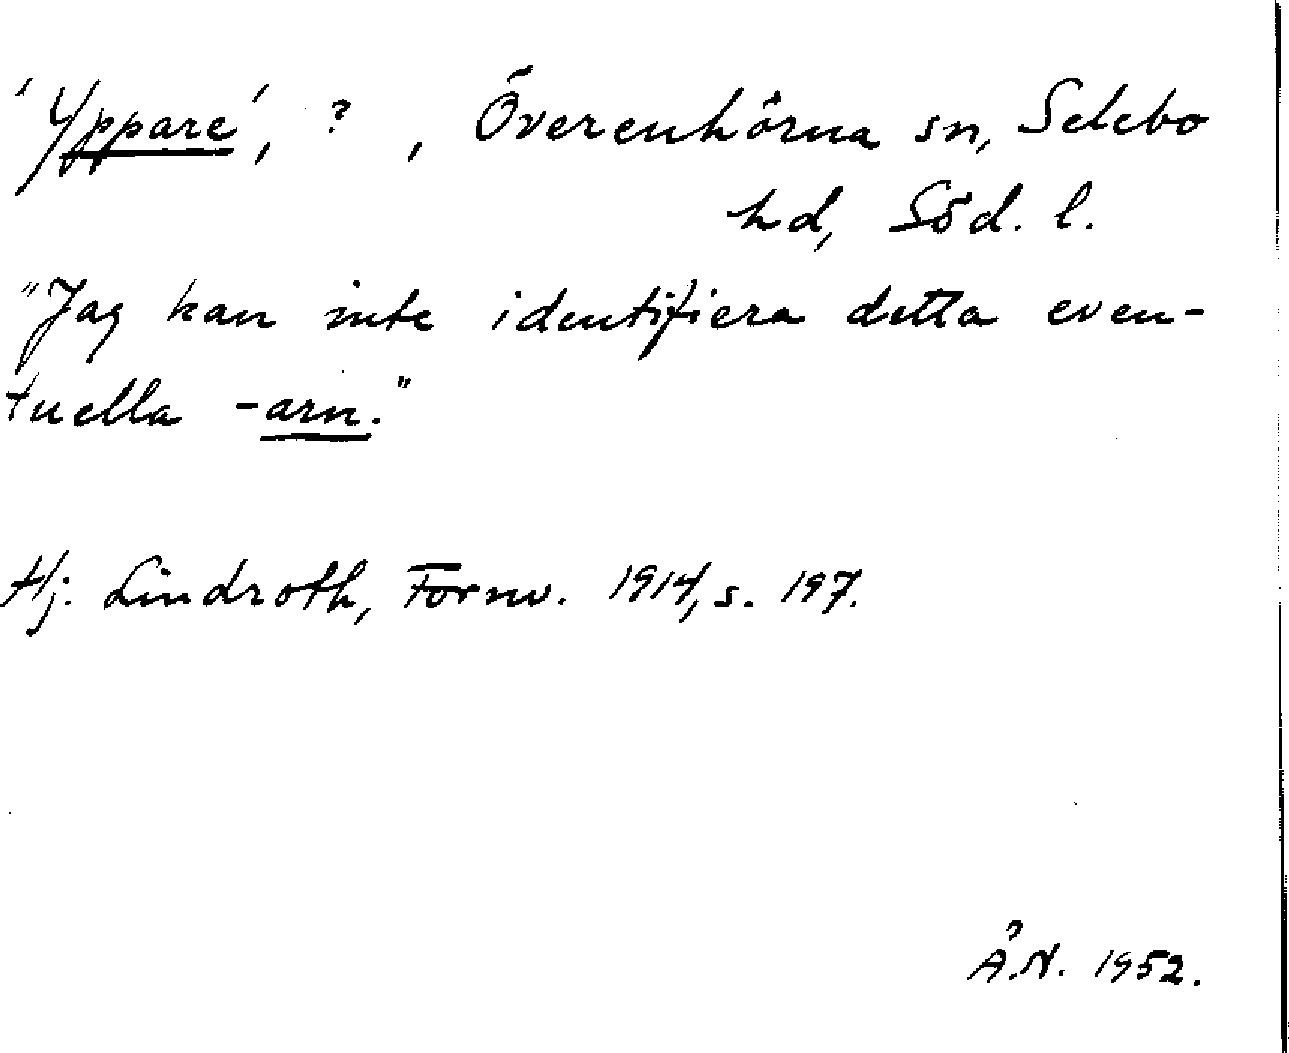 'Yppare', ?, Överenhörna sn, Selebo
hd, Söd. l.
"Jag kan inte identifiera detta even-
tuella -arn."
Hj. Lindroth, Fornv. 1914, s. 197.
Å.N. 1952.